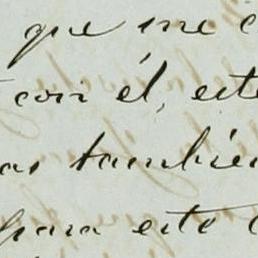 que me
con él, este
as también
para este